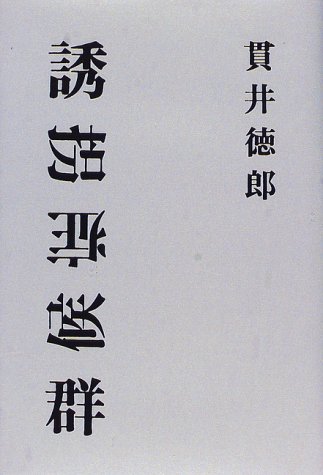 貫井徳郎
誘拐症候群